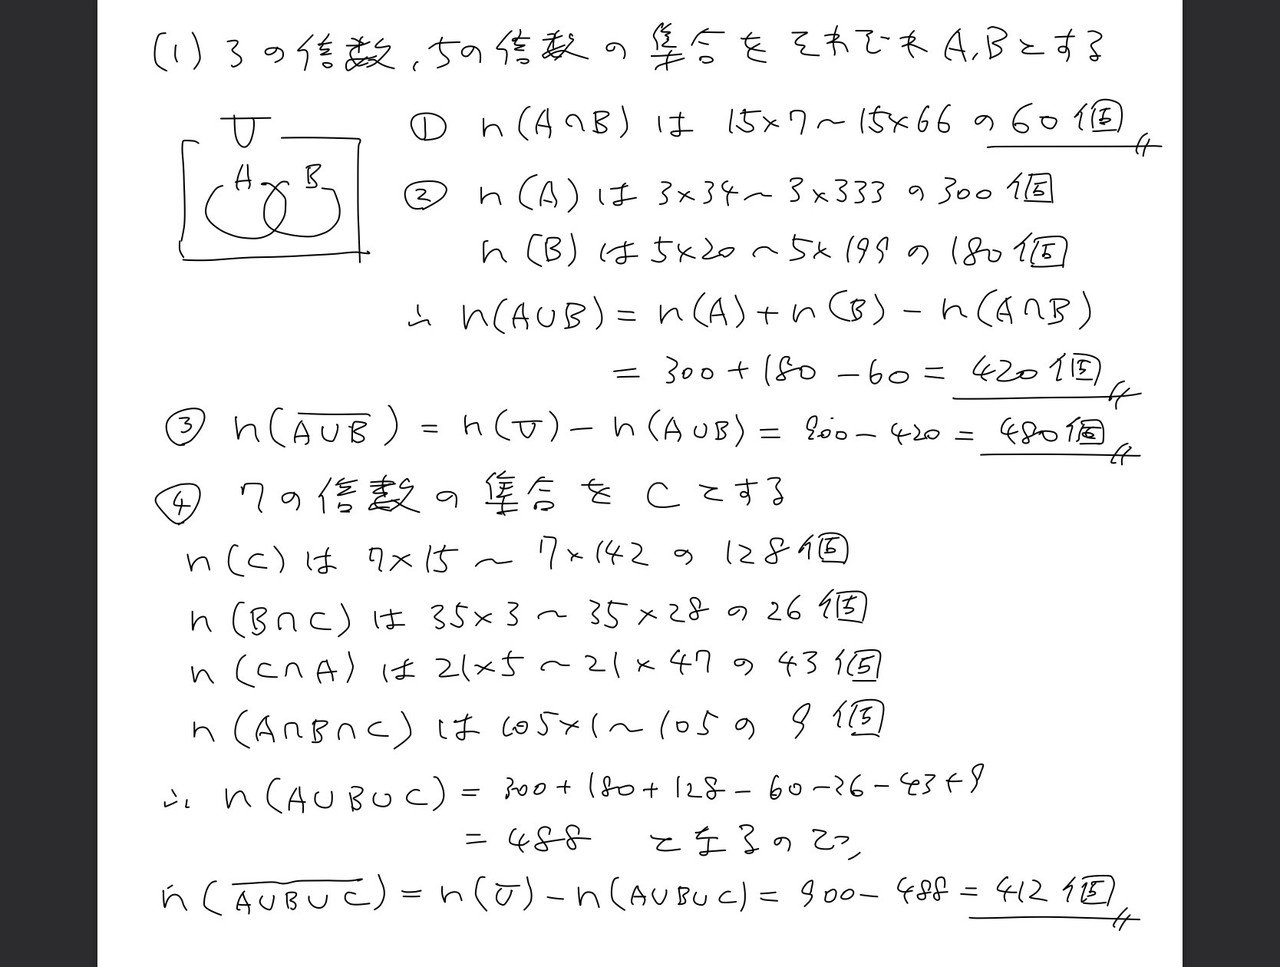 (1) 3の倍数, 5の倍数の集合をそれぞれA, Bとする
U
A B
① n(A∩B) は 15×7〜15×66 の 60個
② n(A) は 3×34〜3×333 の 300個
n(B) は 5×20〜5×199 の 180個
∴ n(A∪B) = n(A) + n(B) − n(A∩B)
= 300 + 180 − 60 = 420個
③ n(\overline{A∪B}) = n(U) − n(A∪B) = 900 − 420 = 480個
④ 7の倍数の集合をCとする
n(C) は 7×15 〜 7×142 の 128個
n(B∩C) は 35×3 〜 35×28 の 26個
n(C∩A) は 21×5 〜 21×47 の 43個
n(A∩B∩C) は 105×1〜105 の 9個
∴ n(A∪B∪C) = 300 + 180 + 128 − 60 − 26 − 43 + 9
= 488 となるので,
n(\overline{A∪B∪C}) = n(U) − n(A∪B∪C) = 900 − 488 = 412個